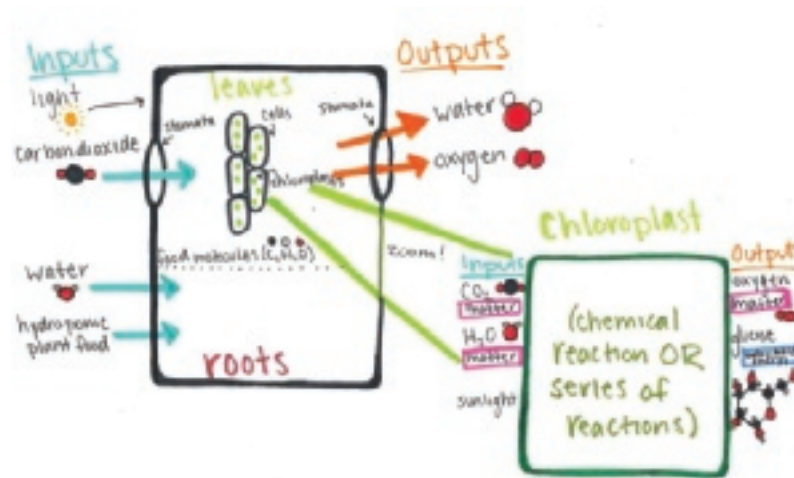 Inputs
light
carbon dioxide
water
hydroponic
plant food
stomata
leaves
cells
chloroplasts
food molecules (C, H, O)
roots
stomata
Outputs
water
oxygen
zoom!
Chloroplast
Inputs
CO₂
matter
H₂O
matter
sunlight
(chemical
reaction OR
series of
reactions)
Output
oxygen
matter